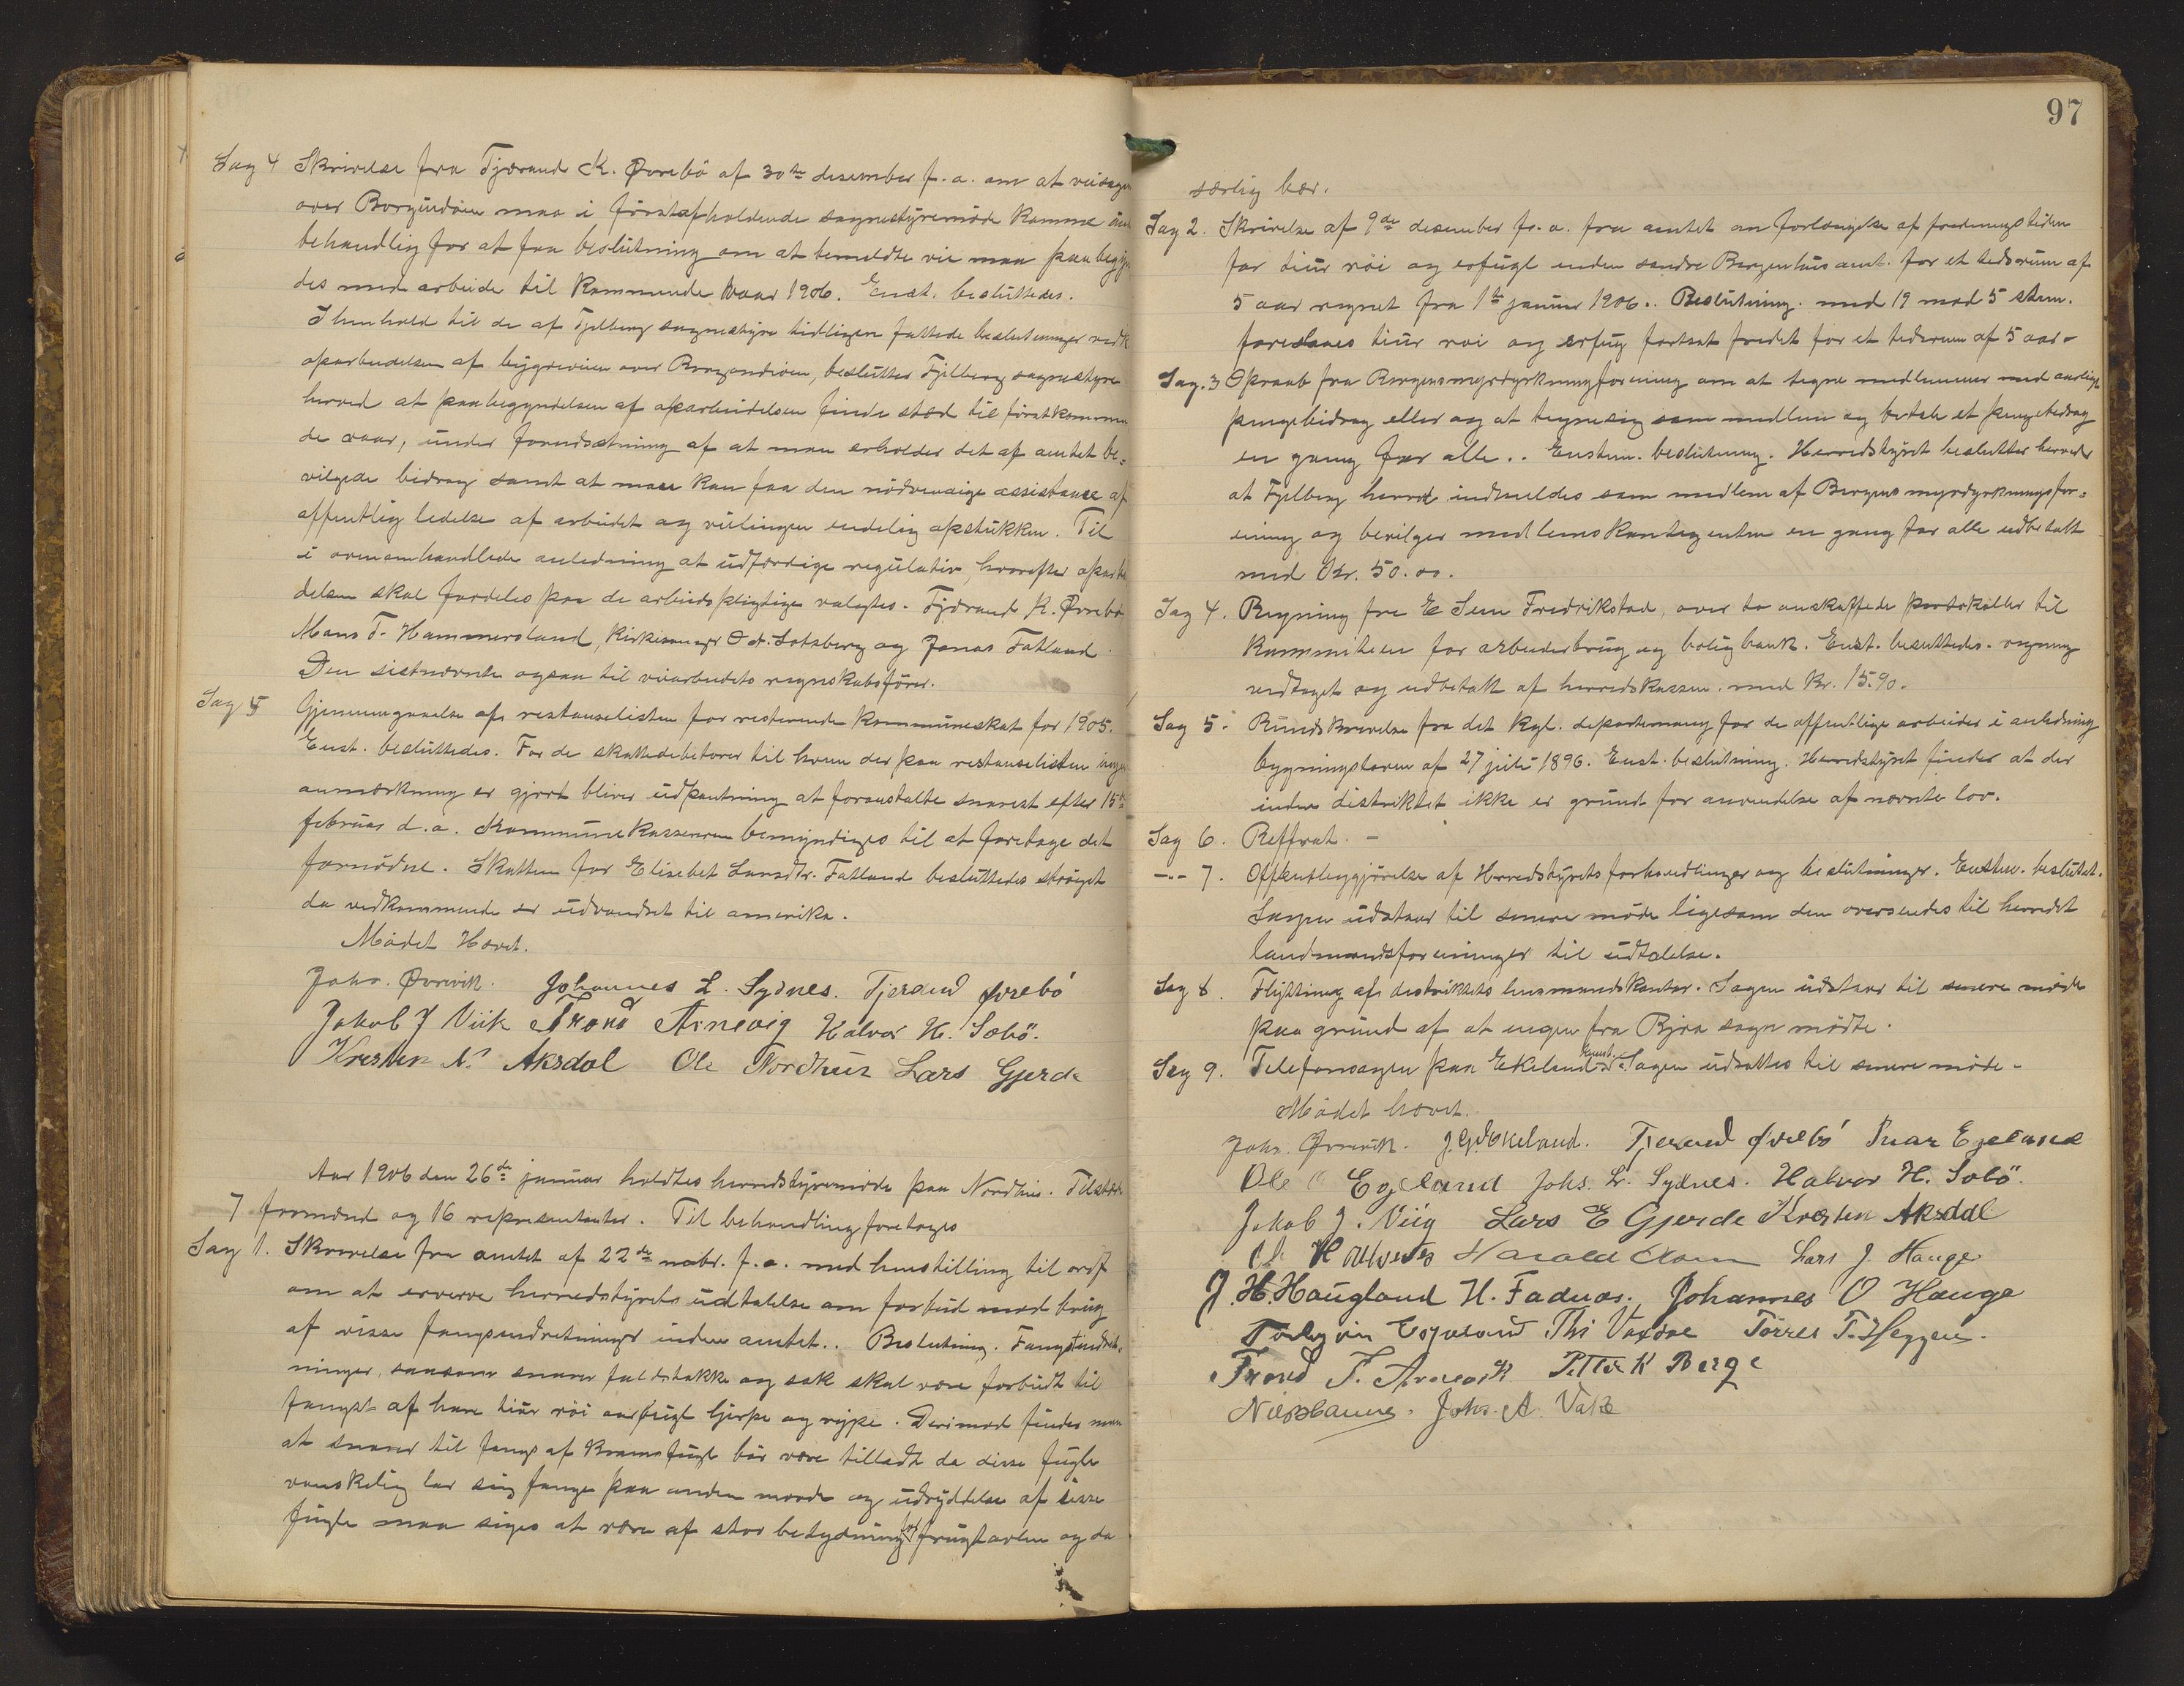 Sag 4 Skrivelse fra Tjærand K. Øvrebö af 30te desember f.a. om at veisagen
over Borgundöen maa i förstafholdende sognestyremöde komme un
behandling for at faa beslutning om at bemeldte vei maa paabegyn
des med arbeide til kommende vaar 1906. Enst. besluttedes.
I henhold til de af Fjelberg sognestyre tidligere fattede beslutninger vedk
oparbeidelsen af bygdeveien over Borgundöen, beslutter Fjelberg sognestyre
herved at paabegyndelsen af oparbeidelsen finde sted til förstkommen
de vaar, under forudsætning af at man erholder det af amtet be-
vilgede bidrag samt at man kan faa den nödvendige assistance af
offentlig ledelse af arbeidet og veilinjen endelig opstukken. Til
i ovenomhandlede anledning at udfærdige regulativ, hvorefter oparbei
delsen skal fordeles paa de arbeidspligtige valgtes. Tjærand K. Øvrebö
Mons T. Hammersland, Kirkesanger O. A. Lotsberg og Jonas Fatland.
Den sistnævnte ogsaa til veiarbeidets regnskabsförer.
Sag 5 Gjennemgaaelse af restanselisten for resterende kommuneskat for 1905.
Enst. besluttedes. For de skattedebitorer til hvem der paa restanselisten ingen
anmærkning er gjort bliver udpantning at foranstalte snarest efter 15de
februar d.a. Kommunekassereren bemyndiges til at foretage det
fornödne. Skatten for Elisebet Larsdtr. Fatland besluttedes ströget
da vedkommende er udvandret til amerika.
Mödet Hævet.
Johs. Øvrevik. Johannes L. Sydnes. Tjerand Øvrebö
Jakob J Viik Trond Arnevig Halvor H. Söbö.
Kresten N. Aksdal Ole Nordhus Lars Gjerde
Aar 1906 den 26de januar holdtes herredstyremöde paa Nordhus. Tilstede
7 formænd og 16 representanter. Til behandling foretoges
Sag 1. Skrivelse fra amtet af 22de novbr. f.a. med henstilling til ordf
om at erverve herredstyrets udtalelse om forbud mod brug
af visse fangsindretninger inden amtet.. Beslutning. Fangstindret-
ninger, saasom snarer faldstokke og saks skal være forbudt til
fangst af hare tiur röi aarfugl hjerpe og rype. Derimod finder man
at snarer til fangs af Kramsfugl bör være tilladt da disse fugle
vanskelig lar sig fange paa anden maade og udryddelse af disse
fugle maa siges at være af stor betydning for frugtavlen og da
97
særlig bær.
Sag 2. Skrivelse af 9de desember f.a. fra amtet om forlængelse af fredningstiden
for tiur röi og orfugl inden söndre Bergenhus amt. for et tidsrum af
5 aar regnet fra 1ste januar 1906.. Beslutning. med 19 mod 5 stem.
foreslaaes tiur röi og orfug fortsat fredet for et tidsrum af 5 aar.
Sag. 3 Opraab fra Bergens myrdyrkningsforening om at tegne medlemmer med aarligt
pengebidrag eller og at tegne sig som medlem og betale et pengebidrag
en gang for alle.. Enstem. beslutning. Herredstyret beslutter herved
at Fjelberg herred indmeldes som medlem af Bergens myrdyrkningsfor-
ening og bevilger medlemskontingenten en gang for alle udbetalt
med Kr. 50.00.
Sag 4. Regning fra E Sem Fredrikstad, over to anskaffede protokoller til
Kommiteen for arbeiderbrug og boligbank. Enst. besluttedes. regning
vedtaget og udbetalt af herredskassen. med Kr. 15.90.
Sag 5. Rundskrivelse fra det kgl. departement for de offentlige arbeider i anledning
bygningsloven af 27 juli 1896. Enst. beslutning. Herredstyret finder at der
inden distriktet ikke er grund for anvendelse af nævnte lov.
Sag 6. Refferat. -
-"- 7. Offentliggjörelse af Herredstyrets forhandlinger og beslutninger. Enstem. beslutet.
Sagen udstaar til senere möde ligesom den oversendes til herredet
landmandsforeninger til udtalelse.
Sag 8. Flytning af distriktets lensmandskontor. Sagen udstaar til senere möde
paa grund af at ingen fra Bjoa sogn mödte.
Sag 9. Telefonsagen paa Ekeland. Sagen udsattes til senere möde.
Mödet hævet.
Johs. Øvrevik. J. G. Økland. Tjerand Øvrebö Ivar Egeland
Ole O Egeland Johs. L. Sydnes. Halvor H. Söbö.
Jakob J. Viig Lars E Gjerde Kresten Aksdal
Harald Lars J. Hauge
J. H. Haugland H. Fadnæs. Johannes O Hauge
Thi Vaxdal Torres T. Heggen.
Trond T. Arnevik Petter K Berge
Johs. A. Vaka